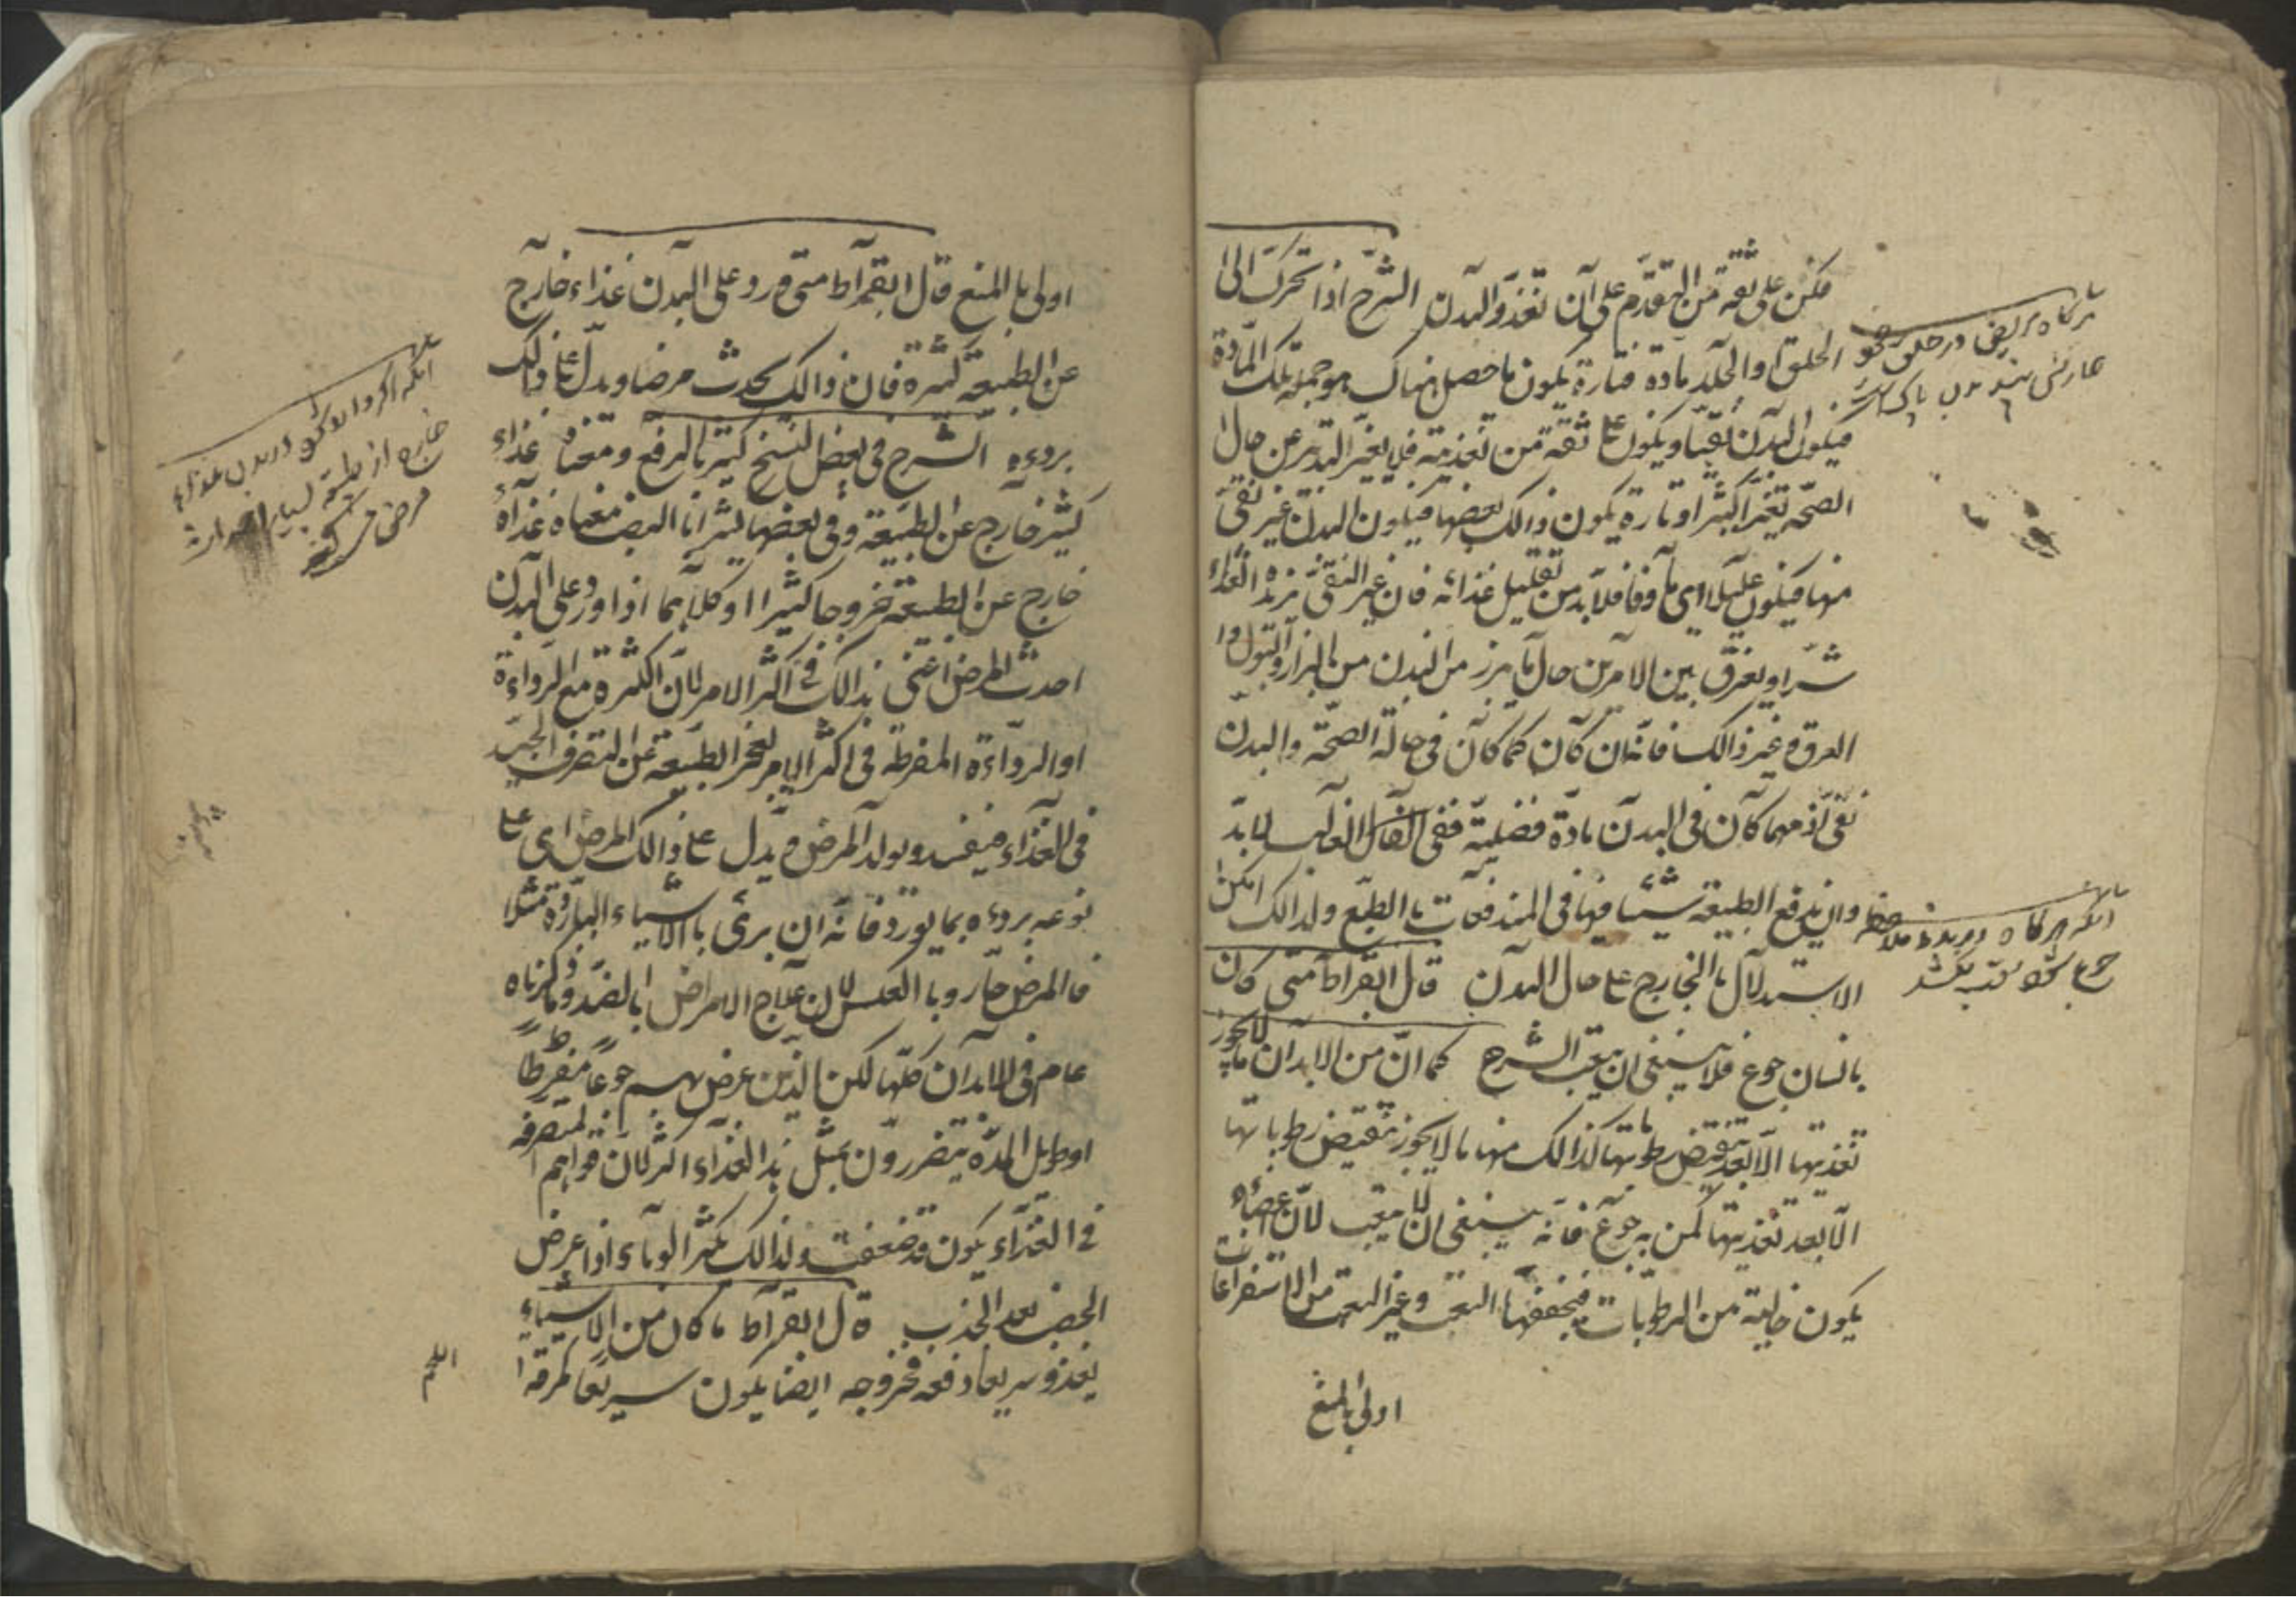 فكن على ثقة من التقدم على ان تغذو البدن الشرح اذا تحركت الى
الحلق او الجلد مادة فتارة يكون ما حصل هناك هو جملة تلك المادة
فيكون البدن نقيا ويكون على ثقة من تغذيته فلا يغير التدبير عن حال
الصحة تغيرا كثيرا وتارة يكون ذالك بعضها فيكون البدن غير نقى
منها فيكون عليلا اى مأوفا فلا بد من تقليل غذائه فان غير النقى يزيده الغذاء
شرا ويفرق بين الامرين حال ما يبرز من البدن من البراز والبول و
العرق وغير ذالك فانه ان كان كما كان فى حالة الصحة والبدن
نقى اذ مهما كان فى البدن مادة فضلية ففى الغالب لا بد
وان يدفع الطبيعة شيئا فيها فى المندفعات بالطبع ولذالك امكن
الاستدلال بالخارج على حال البدن قال ابقراط متى كان
بانسان جوع فلا ينبغى ان يتعب الشرح كما ان من الابدان ما لا يجوز
تغذيتها الا بعد تنقيص رطوبتها كذالك منها ما لا يجوز تنقيص رطوباتها
الا بعد تغذيتها كمن به جوع فانه ينبغى ان لا يتعب لان اعضاءه
يكون خالية من الرطوبات فيجففها التعب وغير التعب من الاستفراغات
اولى بالمنع
هرگاه مريض در حلق
آنكه هرگاه
جوع
اولى بالمنع قال ابقراط متى ورد على البدن غذاء خارج
عن الطبيعة كثيرة فان ذالك يحدث مرضا ويدل على ذالك
برؤه الشرح فى بعض النسخ كثير بالرفع ومعناه غذاء
كثير خارج عن الطبيعة وفى بعضها كثيرا بالنصب معناه غذاء
خارج عن الطبيعة خروجا كثيرا وكلاهما اذا ورد على البدن
احدث المرض اعنى بذالك فى اكثر الامر لان الكثرة مع الرداءة
او الرداءة المفرطة فى اكثر الامر يعجز الطبيعة عن التصرف الجيد
فى الغذاء فيفسد ويولد المرض ويدل على ذالك المرض اى على
نوعه برؤه بما يورد فانه ان برى بالاشياء الباردة مثلا
فالمرض حار وبالعكس لان علاج الامراض بالضد وما ذكرناه
عام فى الابدان كلها لكن الذين عرض بهم جوعا مفرطا
او طويل المدة يتضررون بمثل هذا الغذاء اكثر لان قواهم المتصرفة
فى الغذاء يكون قد ضعفت ولذالك يكثر الوباء اذا عرض
الخصب بعد الجدب قال ابقراط ما كان من الاشياء
يغذو سريعا دفعة فخروجه ايضا يكون سريعا كمرقة
اللحم